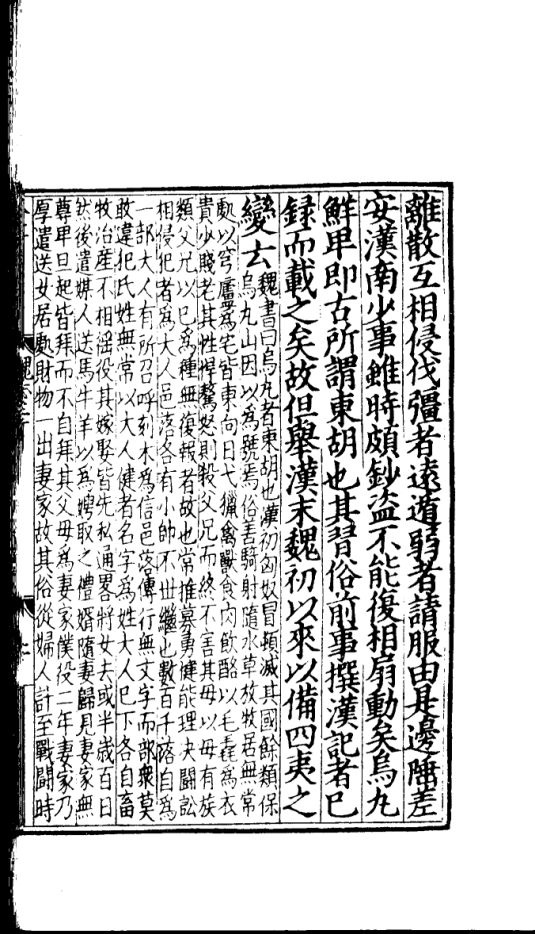 離散互相侵伐彊者遠遁弱者請服由是邊陲差
安漢南少事雖時頗鈔盜不能復相扇動矣烏丸
鮮卑即古所謂東胡也其習俗前事撰漢記者已
録而載之矣故但舉漢末魏初以來以備四夷之
變云
魏書曰烏丸者東胡也漢初匈奴冒頓滅其國餘類保
烏丸山因以為號焉俗善騎射隨水草放牧居無常
處以穹廬為宅皆東向日弋獵禽獸食肉飲酪以毛毳為衣
貴少賤老其性悍驁怒則殺父兄而終不害其母以母有族
類父兄以己為種無復報者故也常推募勇健能理决鬭訟
相侵犯者為大人邑落各有小帥不世繼也數百千落自為
一部大人有所召呼刻木為信邑落傳行無文字而部衆莫
敢違犯氏姓無常以大人健者名字為姓大人已下各自畜
牧治產不相徭役其嫁娶皆先私通畧將女去或半歲百日
然後遣媒人送馬牛羊以為娉取之禮婿隨妻歸見妻家無
尊卑旦起皆拜而不自拜其父母為妻家僕役二年妻家乃
厚遣送女居處財物一出妻家故其俗從婦人計至戰鬭時